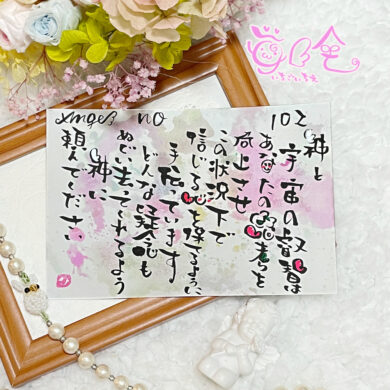 Angel NO
102
神と
宇宙の叡智は
あなたの思考を
向上させ
この状況下で
信じる心を保てるように
手伝っています
どんな疑念も
ぬぐい去ってくれるよう
神に
頼んでください